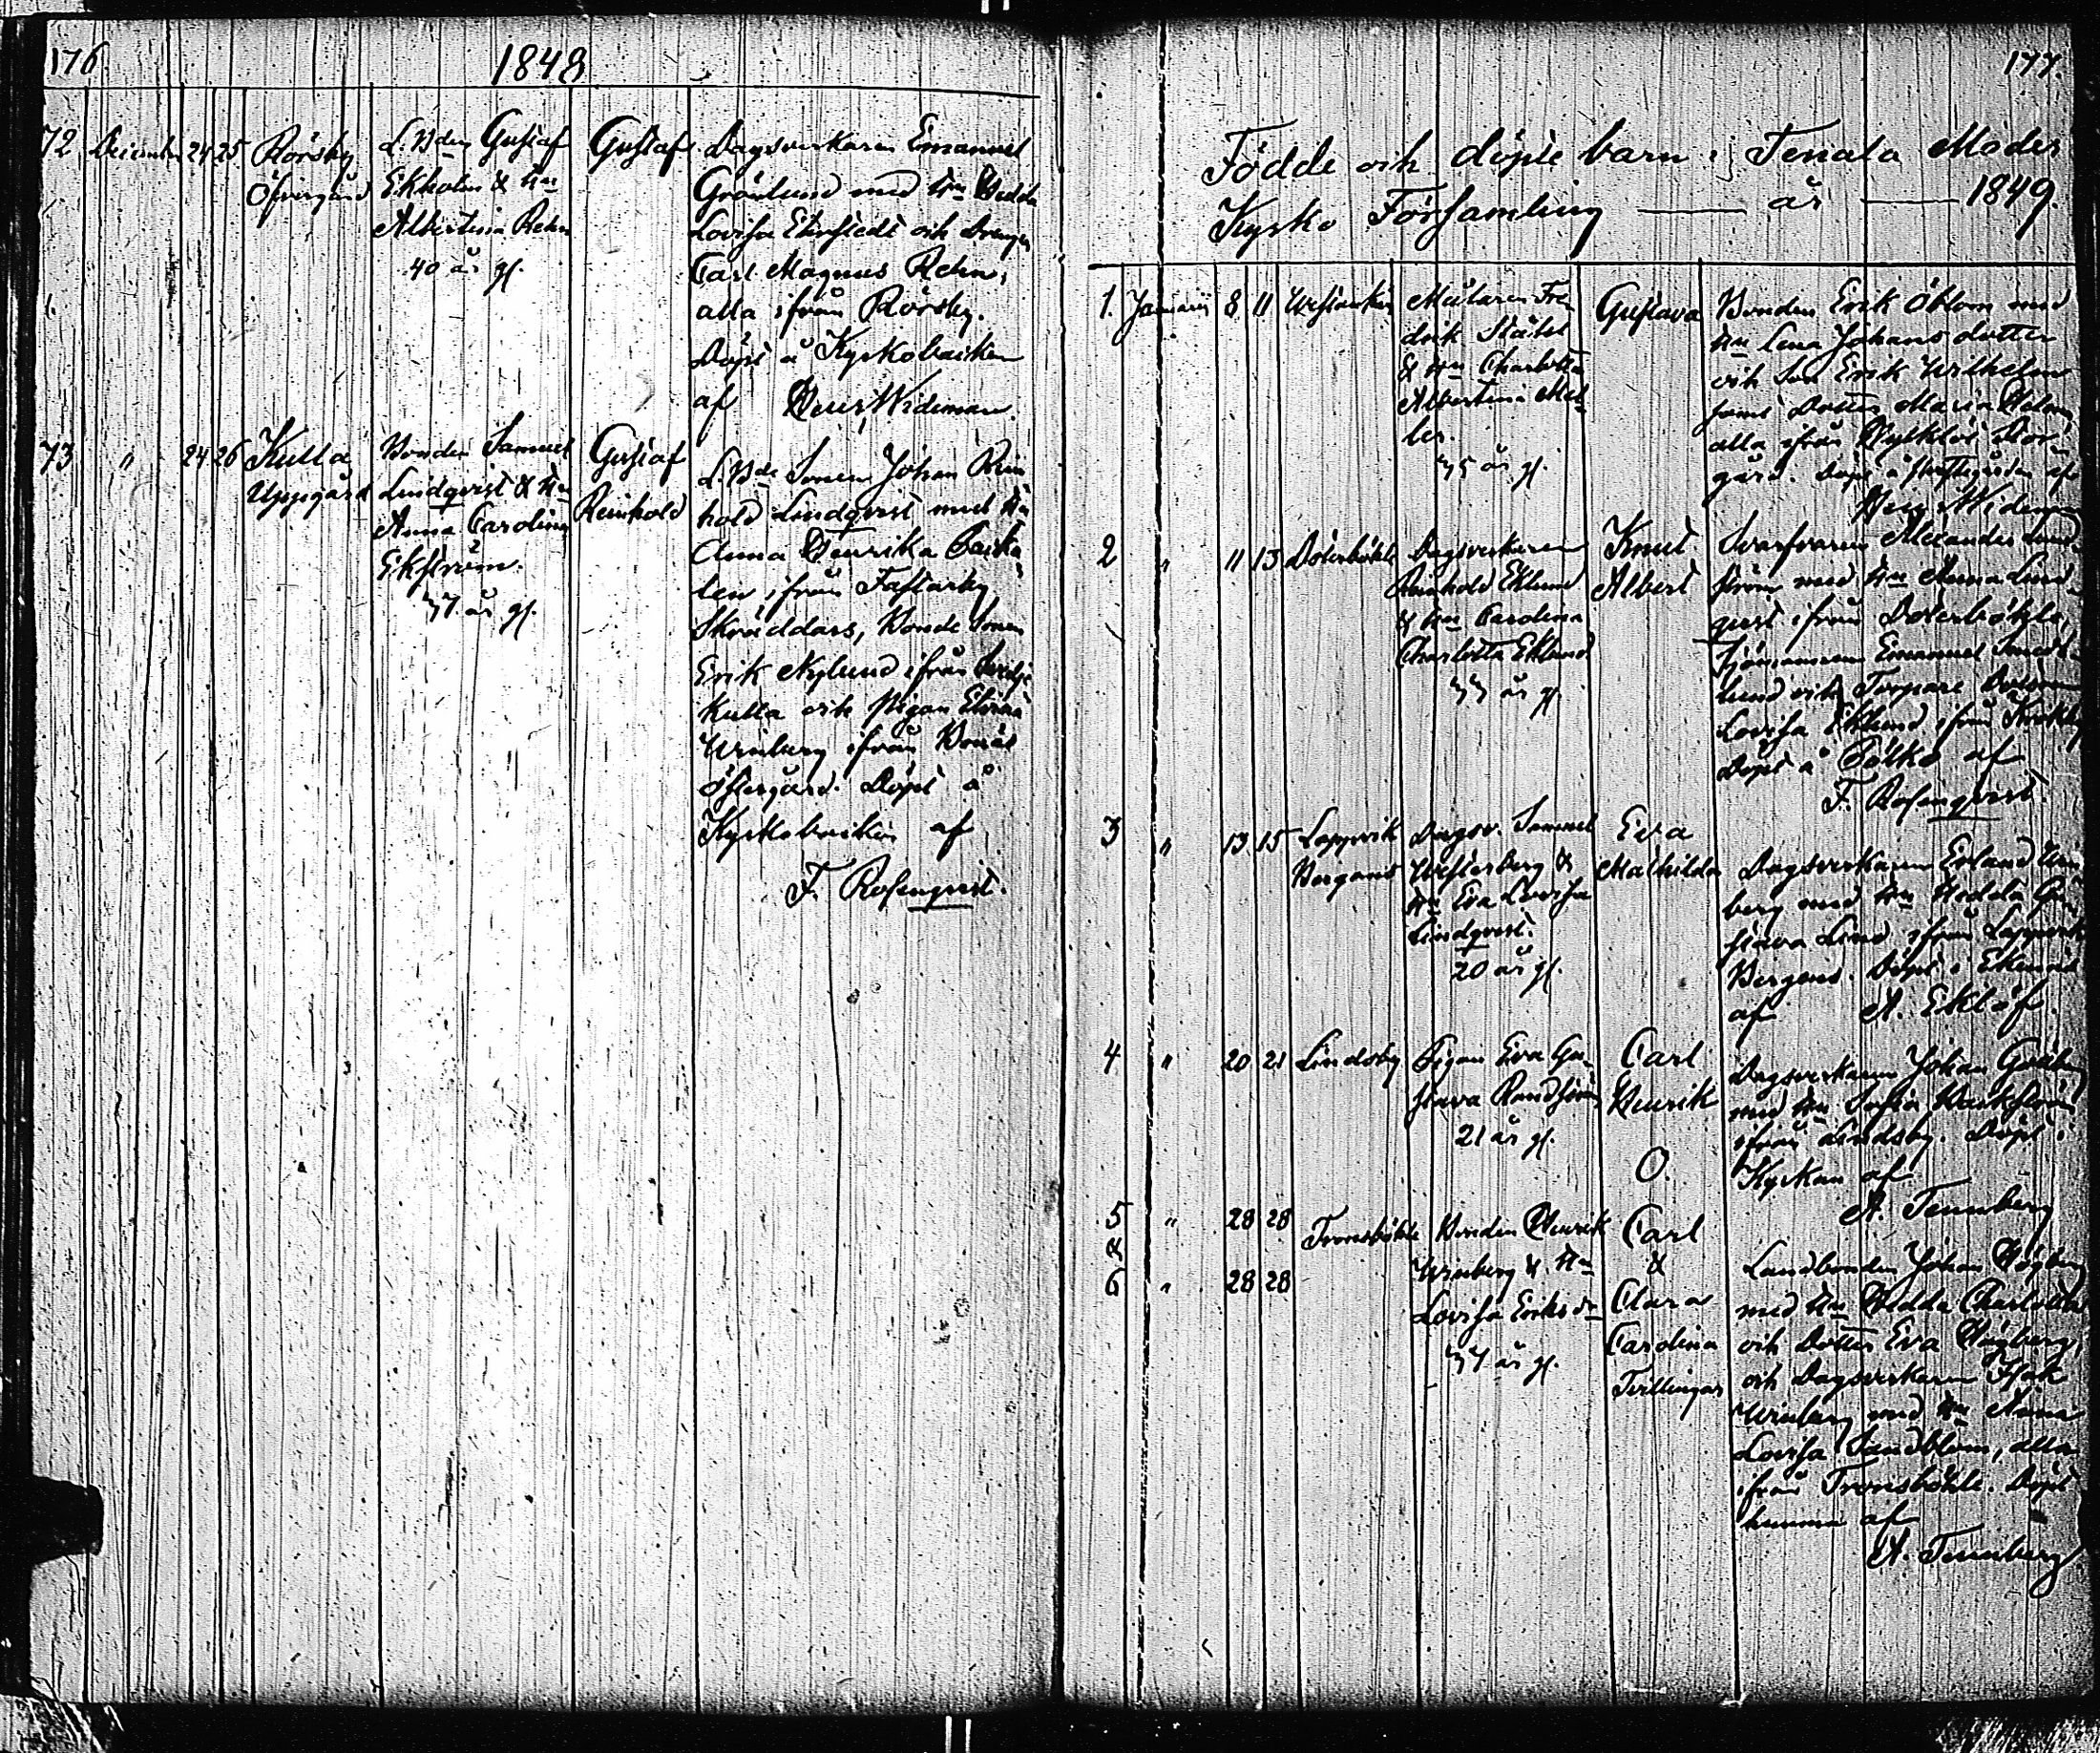 176
1848
72 December 24 25 Rörsby Öfvergård
L. Bden Gustaf
Ekholm & Hu
Albertina Rehn
40 år gl.
Gustaf
Dagsverkaren Emanuel
Grönlund med Hu Hedda
Lovisa Ehrstedt och Drengen
Carl Magnus Rehn,
alla ifrån Rörsby.
Döpt å Kyrkobacken
af Henr. Wideman
73 " 24 26 Kulla Uppigård
Bonden Samuel
Lindqvist & Hu
Anna Carolina
Ekström.
Gustaf
Reinhold
L. Bde Sonen Johan Rein
hold Lindqvist med Hu
Anna Henrika
ifrån Fastarby
Skräddars, Bonde Sonen
Erik Nylund ifrån
Kulla och Pigan
Winberg ifrån
Östergård. Döpt å
Kyrkobacken af
F. Rosenqvist.
177.
Födde och döpte barn i Tenala Moder
Kyrko Församling — år — 1849.
1. Januarii 8 11
Målaren Fre
drik Ståhl
& Hu Charlotta
Albertina Mel
ler.
år gl.
Gustava
Bonden Erik Öblom med
Hu Lena Johansdotter
och Son Erik Wilhelm
samt Dotter Maria
alla ifrån
gård. Döpt å af
Henr. Wideman
2 " 11 13
Dagsverkaren
Reinhold Eklund
& Hu Carolina
Charlotta Eklund
år gl.
Knut
Albert
Svarfvaren Alexander Lund
ström med Hu Anna Lind
qvist ifrån
Emanuel
lund och Torpare
Lovisa Eklund ifrån
Döpt å af
F. Rosenqvist
3 " 13 15 Lappvik Bergans
Dagsv. Samuel
Westerberg &
Hu Eva Lovisa
Lindqvist.
20 år gl.
Eva
Mathilda
Dagsverkaren Erland
berg med Hu Hedda Gu
stava Lind ifrån Lappvik
Bergans. Döpt i Ekenäs
af A. Eklöf.
4 " 20 21 Lindsby
Pigan Eva Gu
stava Randström
21 år gl.
Carl
Henrik
O.
Dagsverkaren Johan
med Hu Sofia
ifrån Lindsby. Döpt i
Kyrkan af
A. Tennberg
5 " 28 28 Tronsböhle
&
6 " 28 28
Bonden Henrik
Winberg & Hu
Lovisa Eriksdr
år gl.
Carl
&
Clara
Carolina
Tvillingar
Landbonden Johan Högberg
med Hu Hedda Charlotta
och Dotter Eva Högberg,
och Dagsverkaren Isak
Winberg med Hu Anna
Lovisa Sandblom, alla
ifrån Tronsböhle. Döpt
hemma af
A. Tennberg